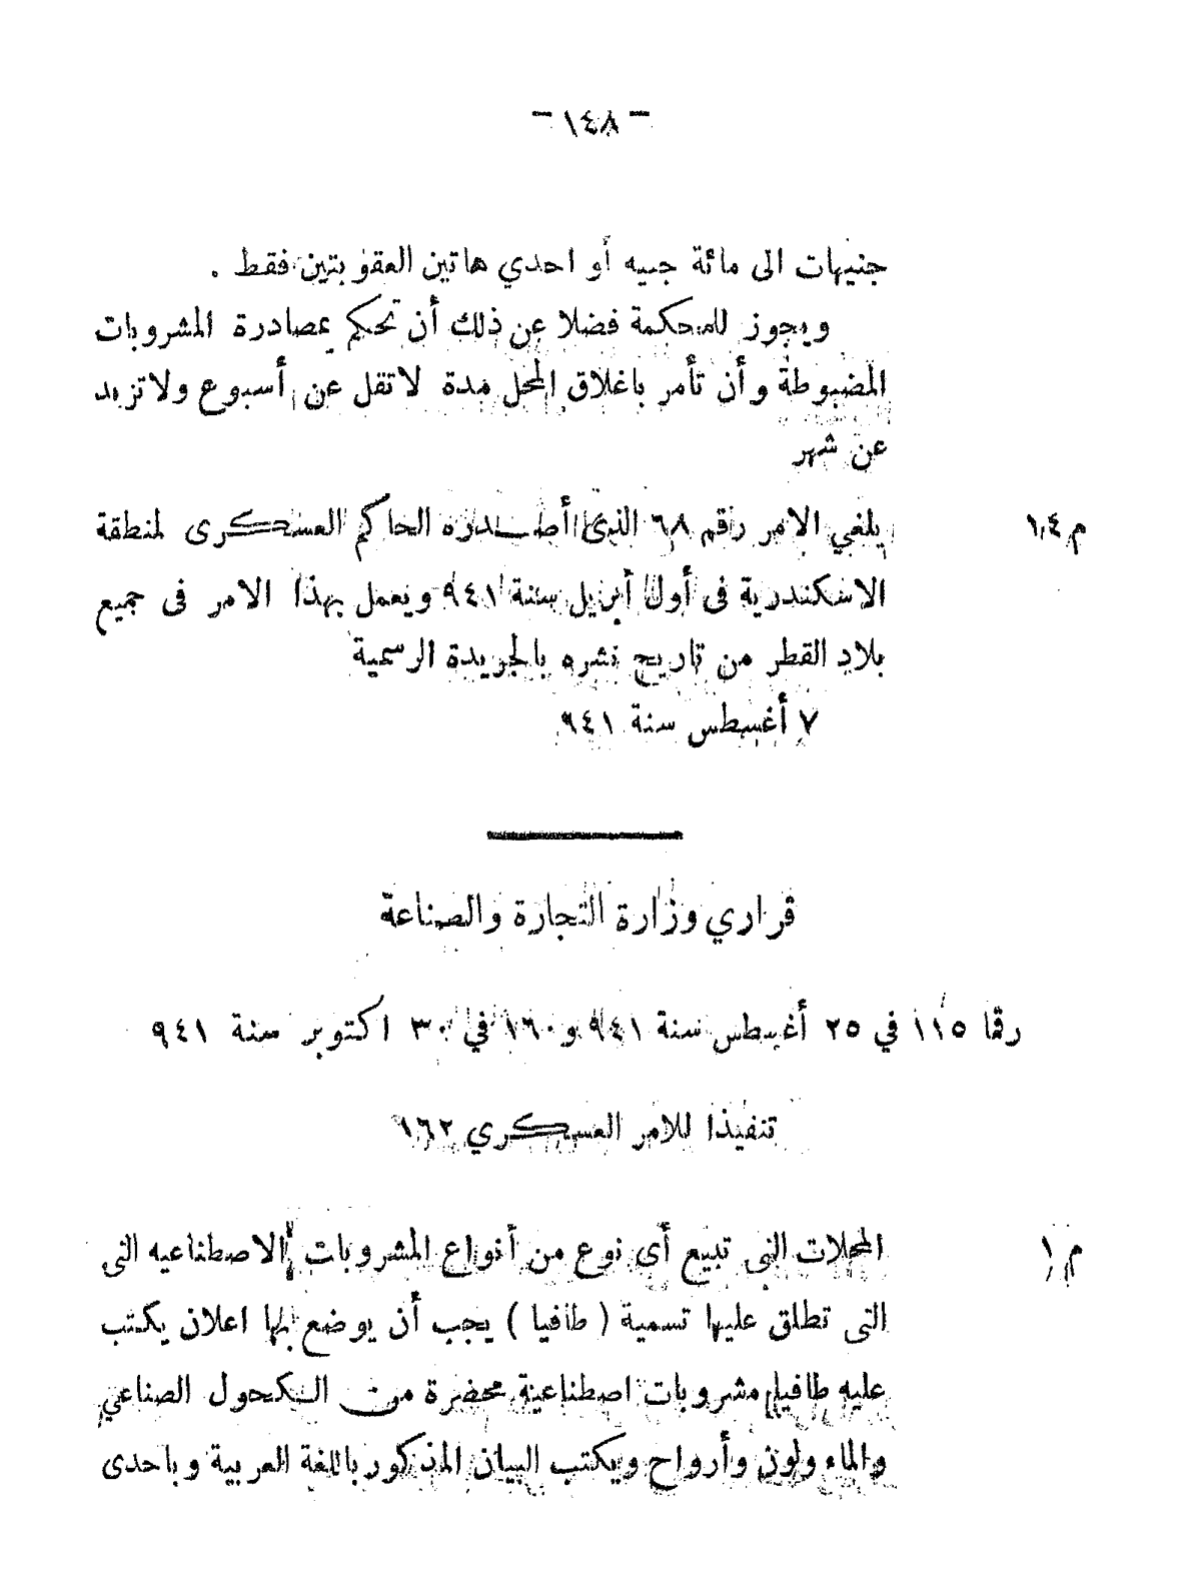 - ١٤٨ -
جنيهات الى مائة جنيه أو احدي هاتين العقوبتين فقط .
ويجوز للمحكمة فضلا عن ذلك أن تحكم بمصادرة المشروبات
المضبوطة وأن تأمر باغلاق المحل مدة لا تقل عن أسبوع ولا تزيد
عن شهر
م ١٤ يلغي الامر رقم ٦٨ الذى أصدره الحاكم العسكرى لمنطقة
الاسكندرية فى أول أبريل سنة ٩٤١ ويعمل بهذا الامر فى جميع
بلاد القطر من تاريخ نشره بالجريدة الرسمية
٧ أغسطس سنة ٩٤١
قراري وزارة التجارة والصناعة
رقما ١١٥ في ٢٥ أغسطس سنة ٩٤١ و١٦٠ في ٣٠ اكتوبر سنة ٩٤١
تنفيذا للامر العسكري ١٦٢
م ١ المحلات التى تبيع أى نوع من أنواع المشروبات الاصطناعيه التى
التى تطلق عليها تسمية ( طافيا ) يجب أن يوضع بها اعلان يكتب
عليه طافيا مشروبات اصطناعية محضرة من الكحول الصناعي
والماء ولون وأرواح ويكتب البيان المذكور باللغة العربية وباحدى